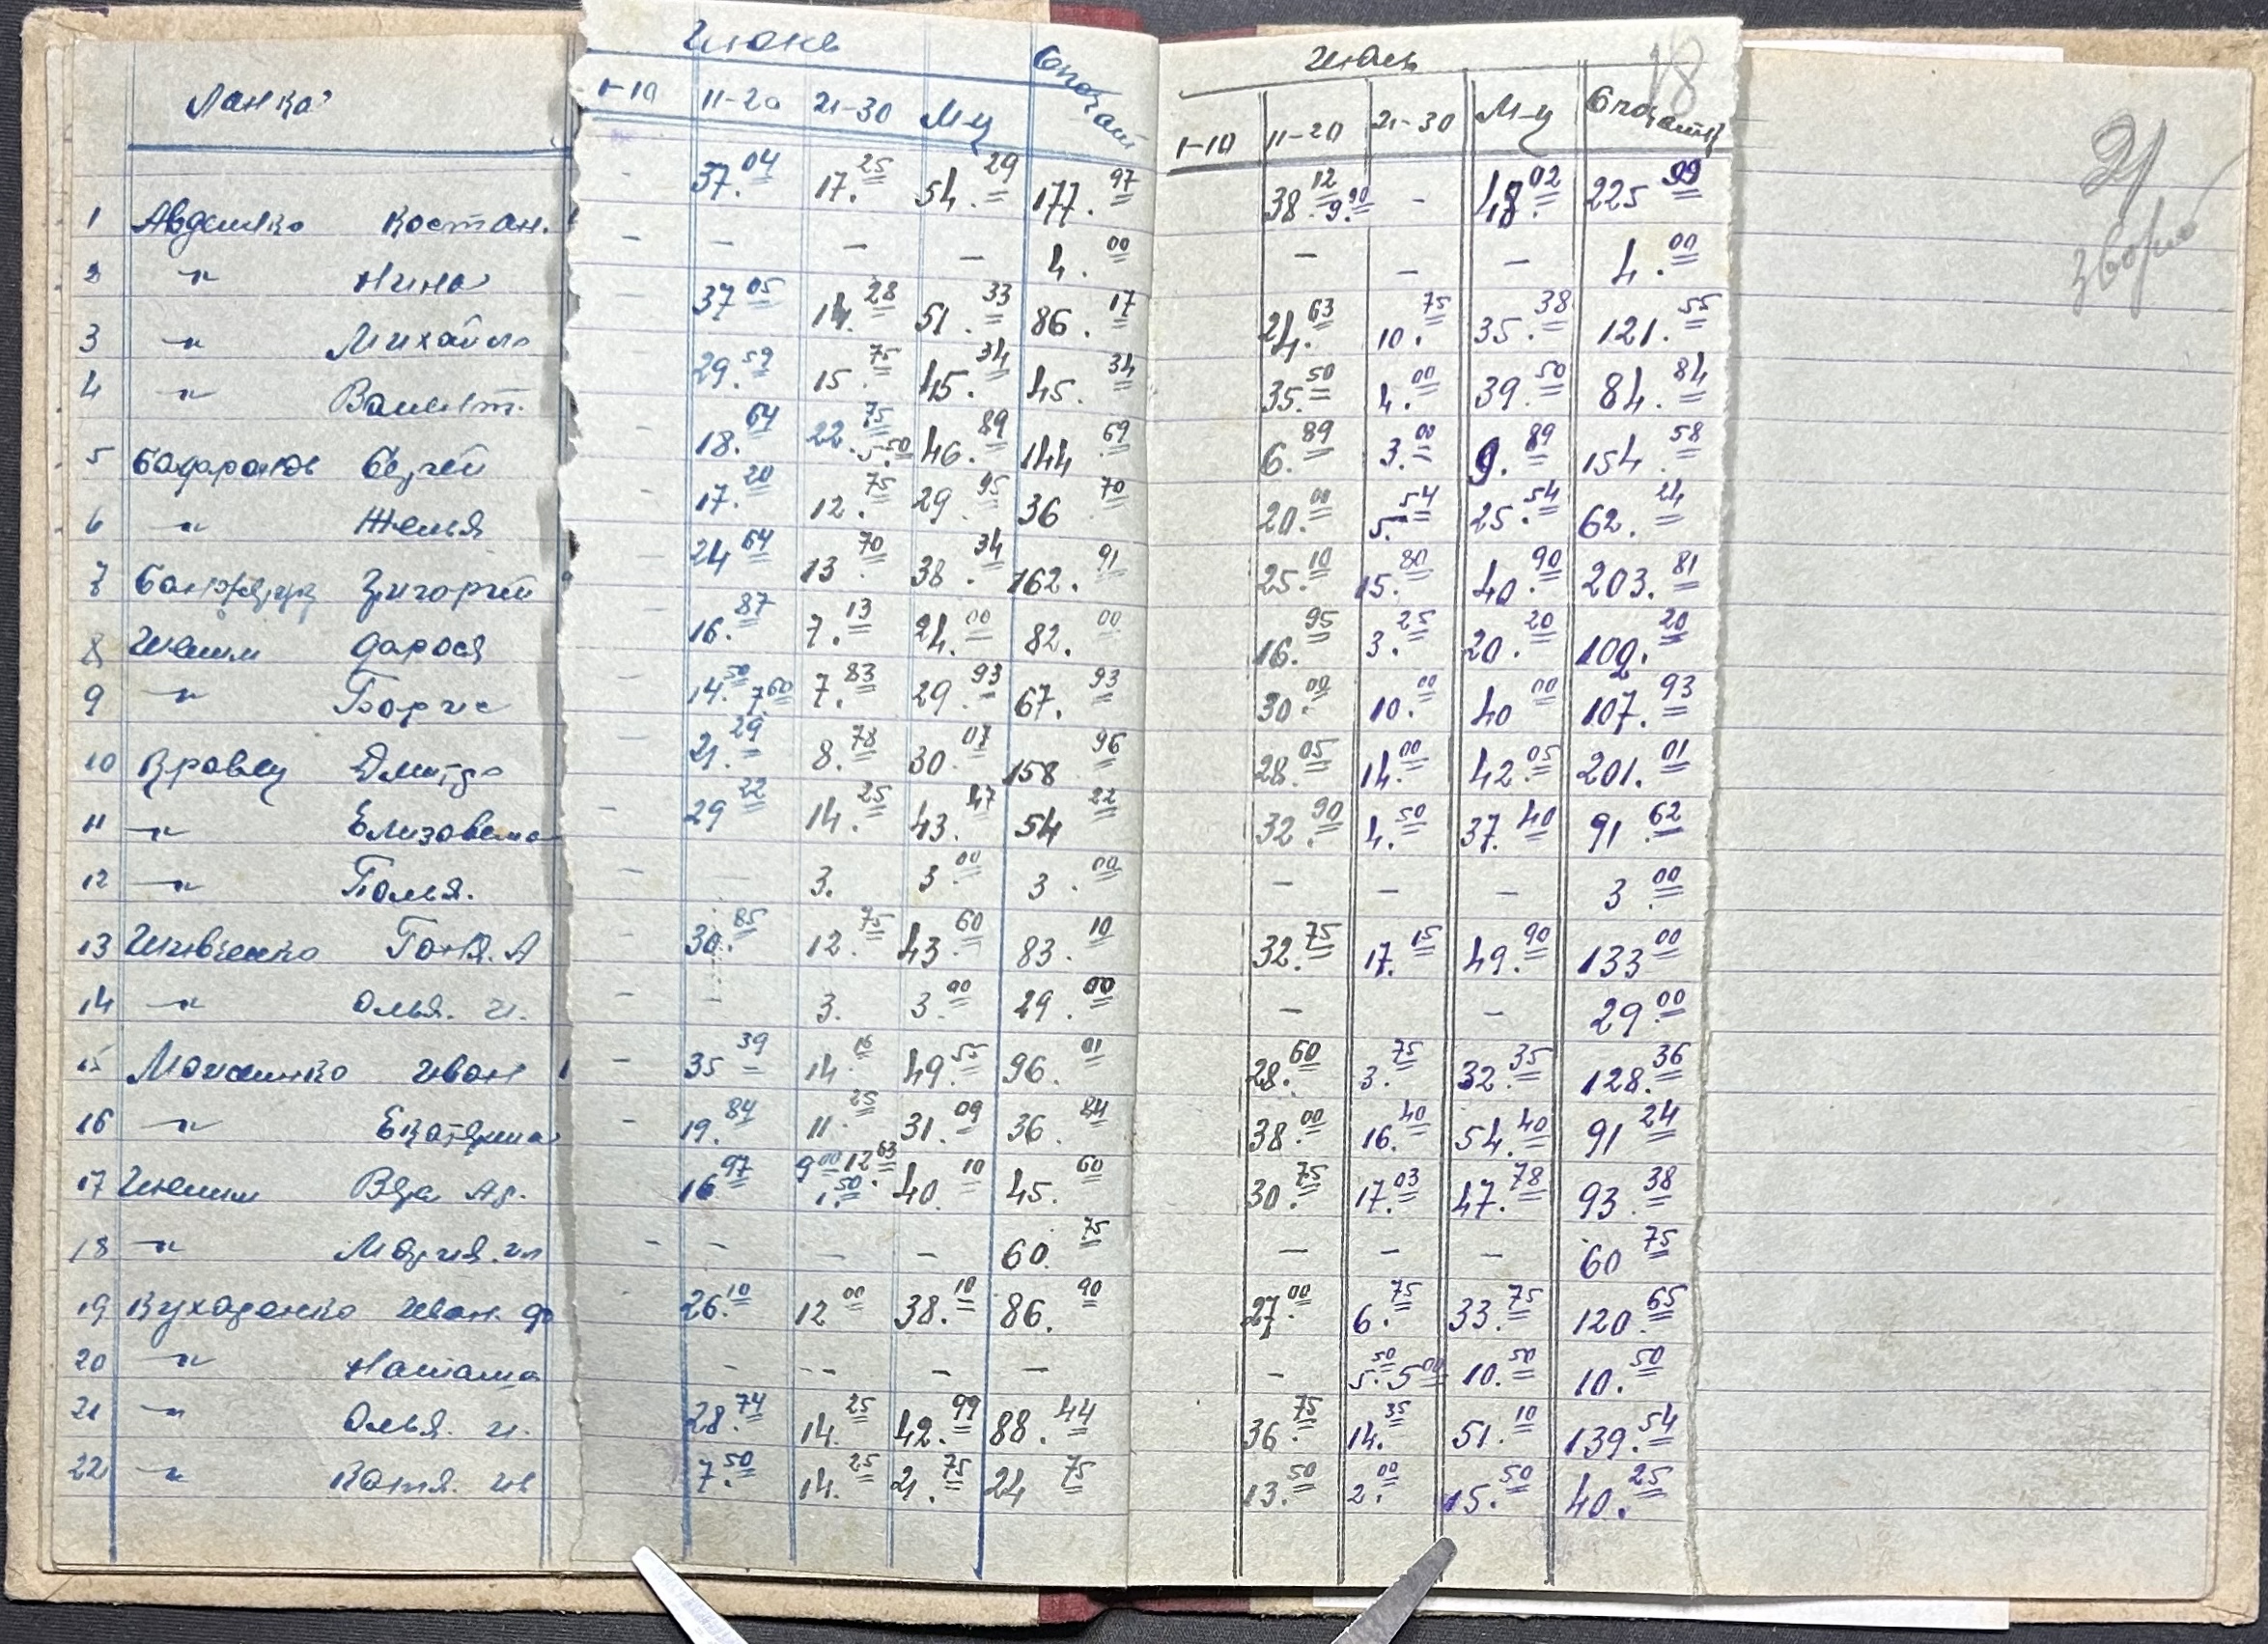 Ланка
Июнь
Июль
18
1-10 11-20 21-30 М-ц
1-10 11-20 21-30 М-ц
21
1 Костан. - 37.04 17.25 54.29 177.97 38.12 9.90 - 48.02 225.99
2 -"- Нина - - - - 4.00 - - - 4.00
3 -"- Михайло - 37.05 14.28 51.33 86.17 24.63 10.75 35.38 121.55
4 -"- - 29.59 15.75 45.34 45.34 35.50 4.00 39.50 84.84
5 - 18.64 22.75 5.50 46.89 144.69 6.89 3.00 9.89 154.58
6 -"- - 17.20 12.75 29.95 36.70 20.00 5.54 25.54 62.24
7 Григорий - 24.64 13.70 38.34 162.91 25.10 15.80 40.90 203.81
8 - 16.87 7.13 24.00 82.00 16.95 3.25 20.20 102.20
9 -"- Борис - 14.50 7.60 7.83 29.93 67.93 30.00 10.00 40.00 107.93
10 Кравец Дмитро - 21.29 8.78 30.07 158.96 28.05 14.00 42.05 201.01
11 -"- Елизавета - 29.22 14.25 43.47 54.22 32.90 4.50 37.40 91.62
12 -"- Поля. - - 3. 3.00 3.00 - - - 3.00
13 - 30.85 12.75 43.60 83.10 32.75 17.15 49.90 133.00
14 -"- Оля. И. - - 3. 3.00 29.00 - - 29.00
15 Иван - 35.39 14.16 49.55 96.01 28.60 3.75 32.35 128.36
16 -"- - 19.84 11.25 31.09 36.84 38.00 16.40 54.40 91.24
17 16.97 9.00 12.63 1.50 40.10 45.60 30.75 17.03 47.78 93.38
18 -"- Мария. - - - - 60.75 - - - 60.75
19 Кухаренко Иван. Ф 26.10 12.00 38.10 86.90 27.00 6.75 33.75 120.65
20 -"- Наташа - - - - - 5.50 5.00 10.50 10.50
21 -"- Оля. И. 28.74 14.25 42.99 88.44 36.75 14.35 51.10 139.54
22 -"- Катя. Ив 7.50 14.25 21.75 24.75 13.50 2.00 15.50 40.25